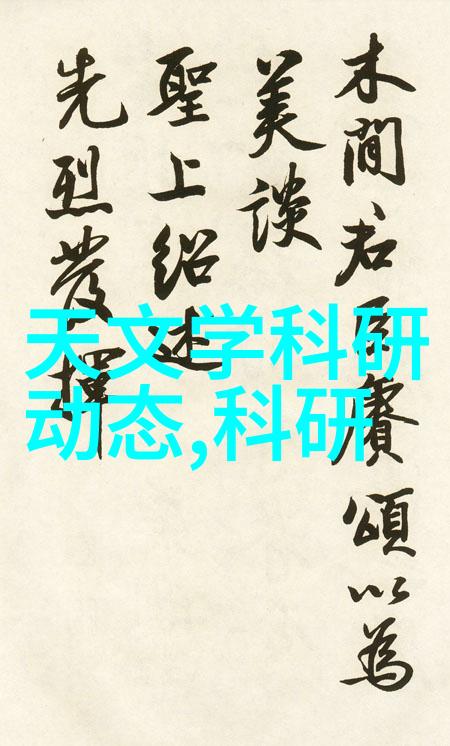 木間君臣賡頌以為
美談
聖上紹述
先烈發揮
天文学科研
动态,科研